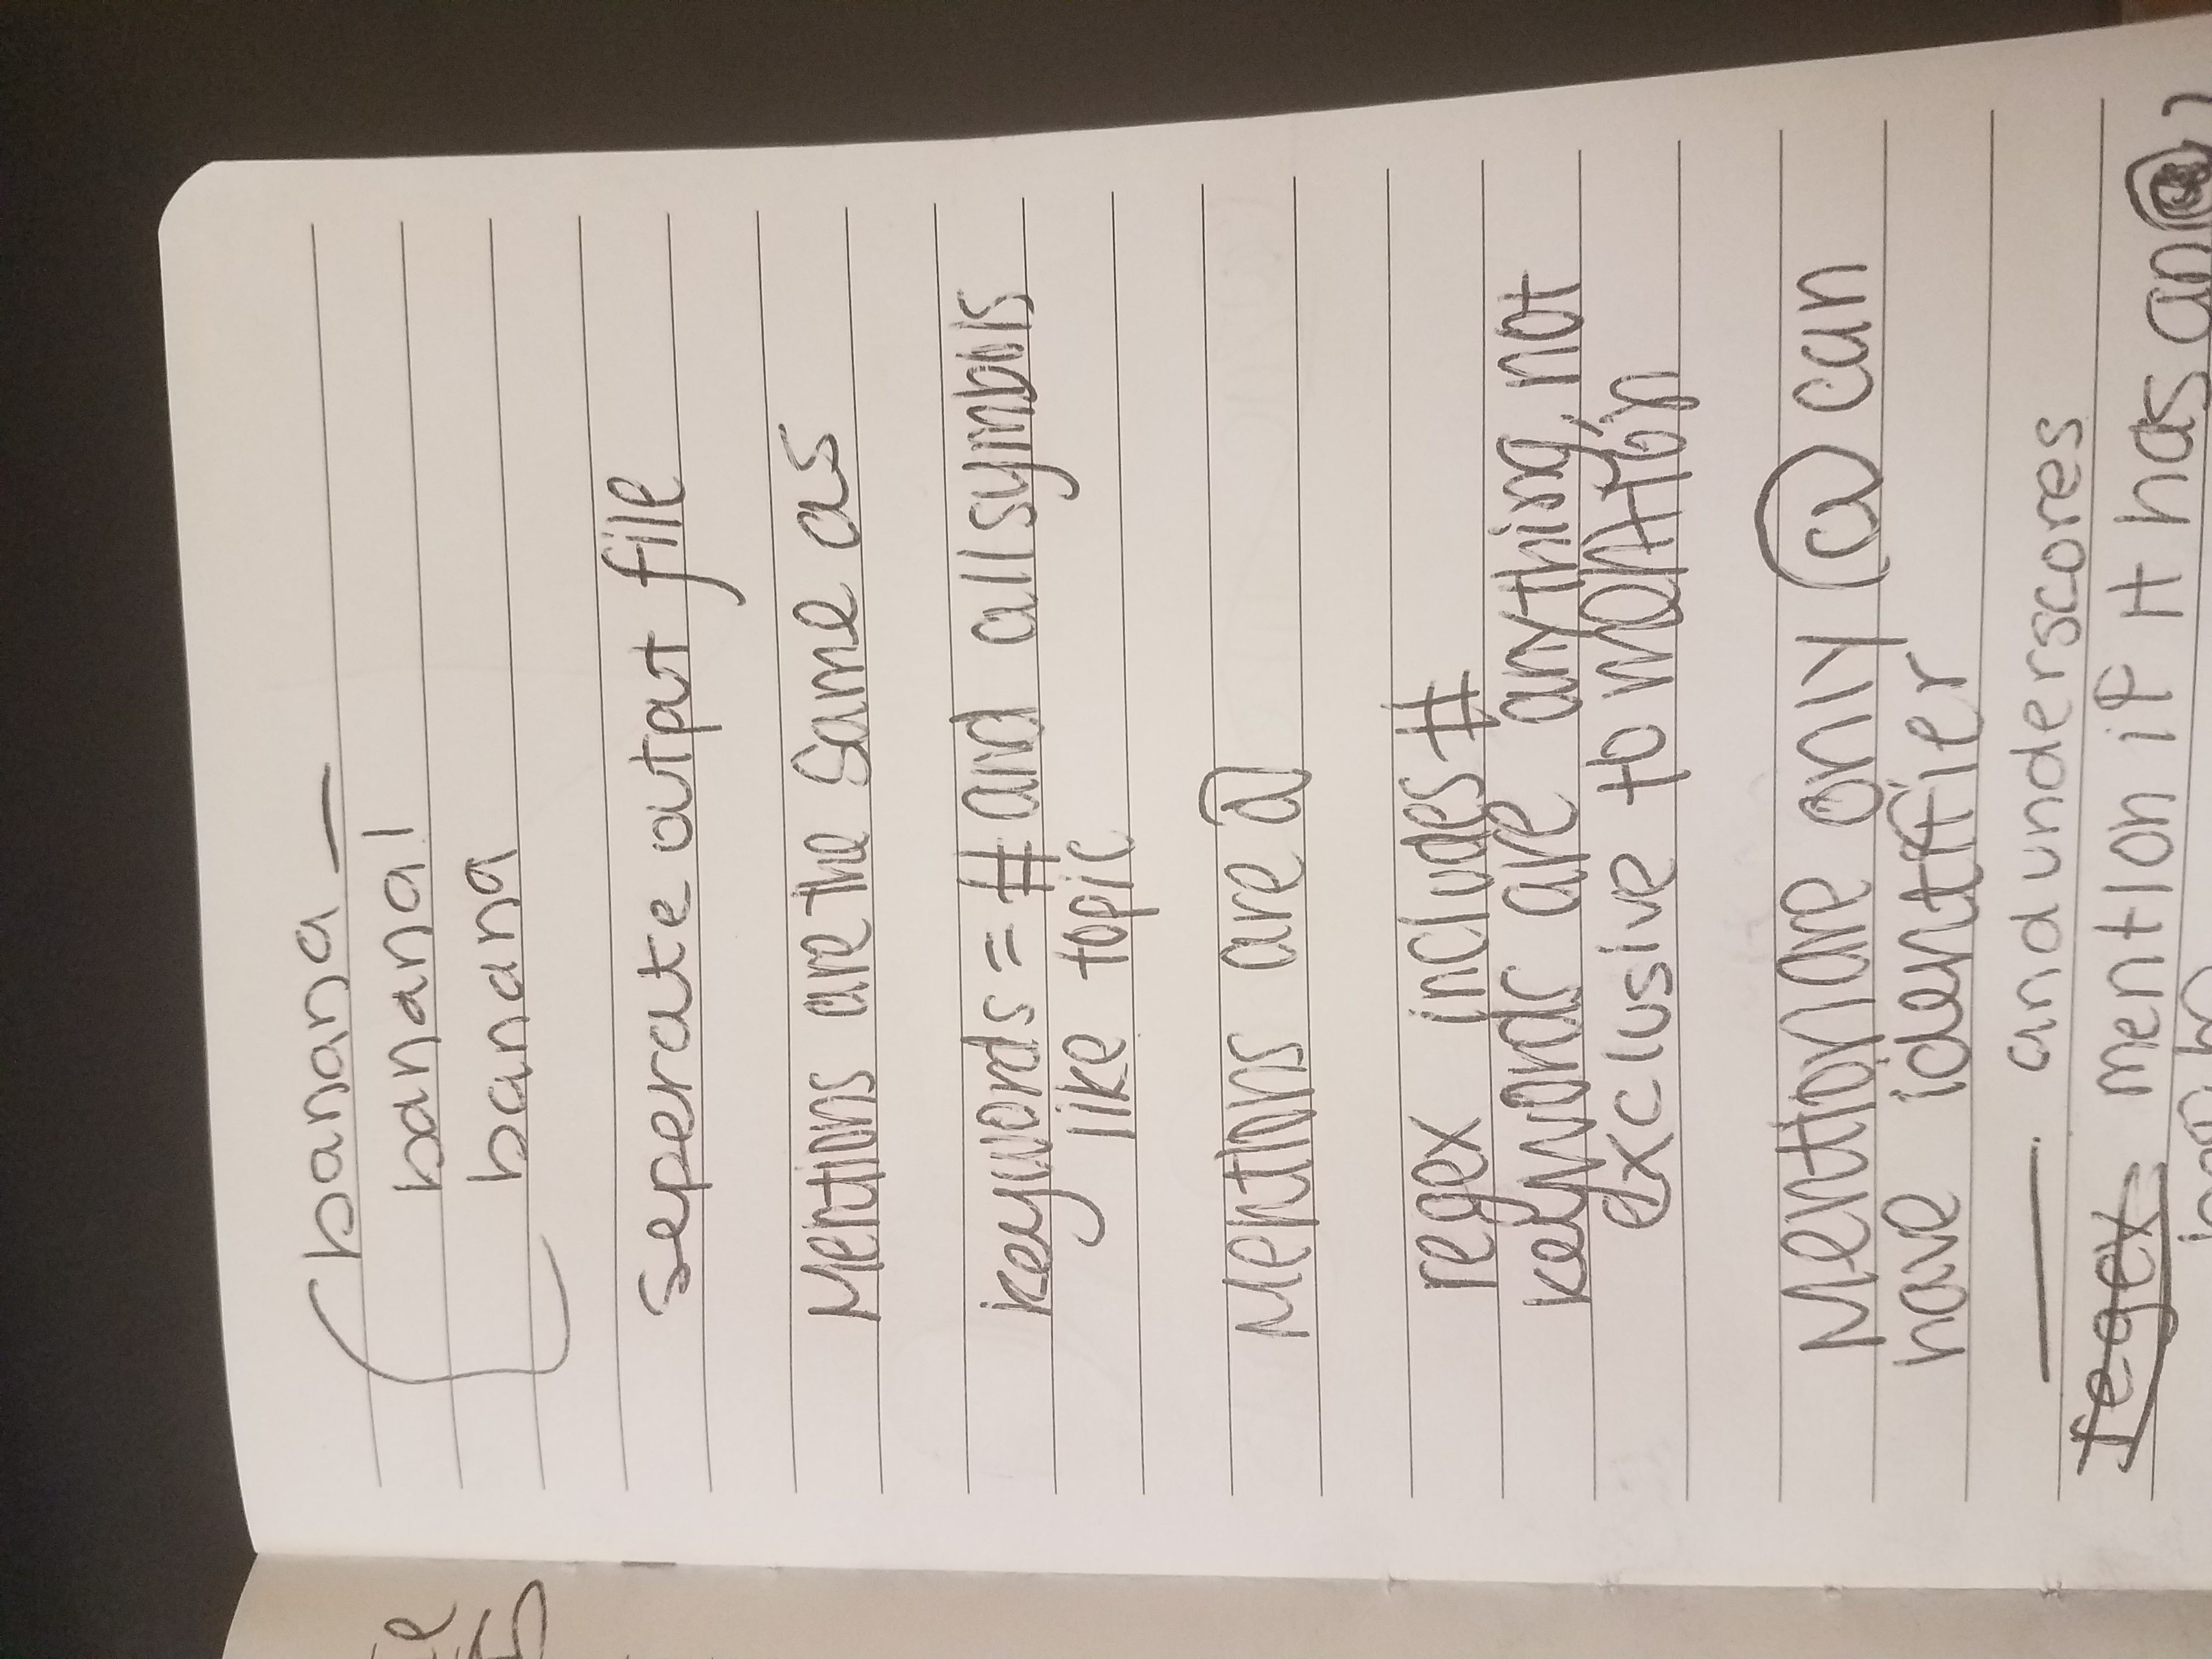 banana _
banana!
banana
seperate output file
Mentions are the same as
keywords = # and all symbols
like topic
Mentions are @
regex includes #
keywords are anything, not
exclusive to mention
Mention are only @ can
have identifier
— and underscores
regex mention if it has an @,